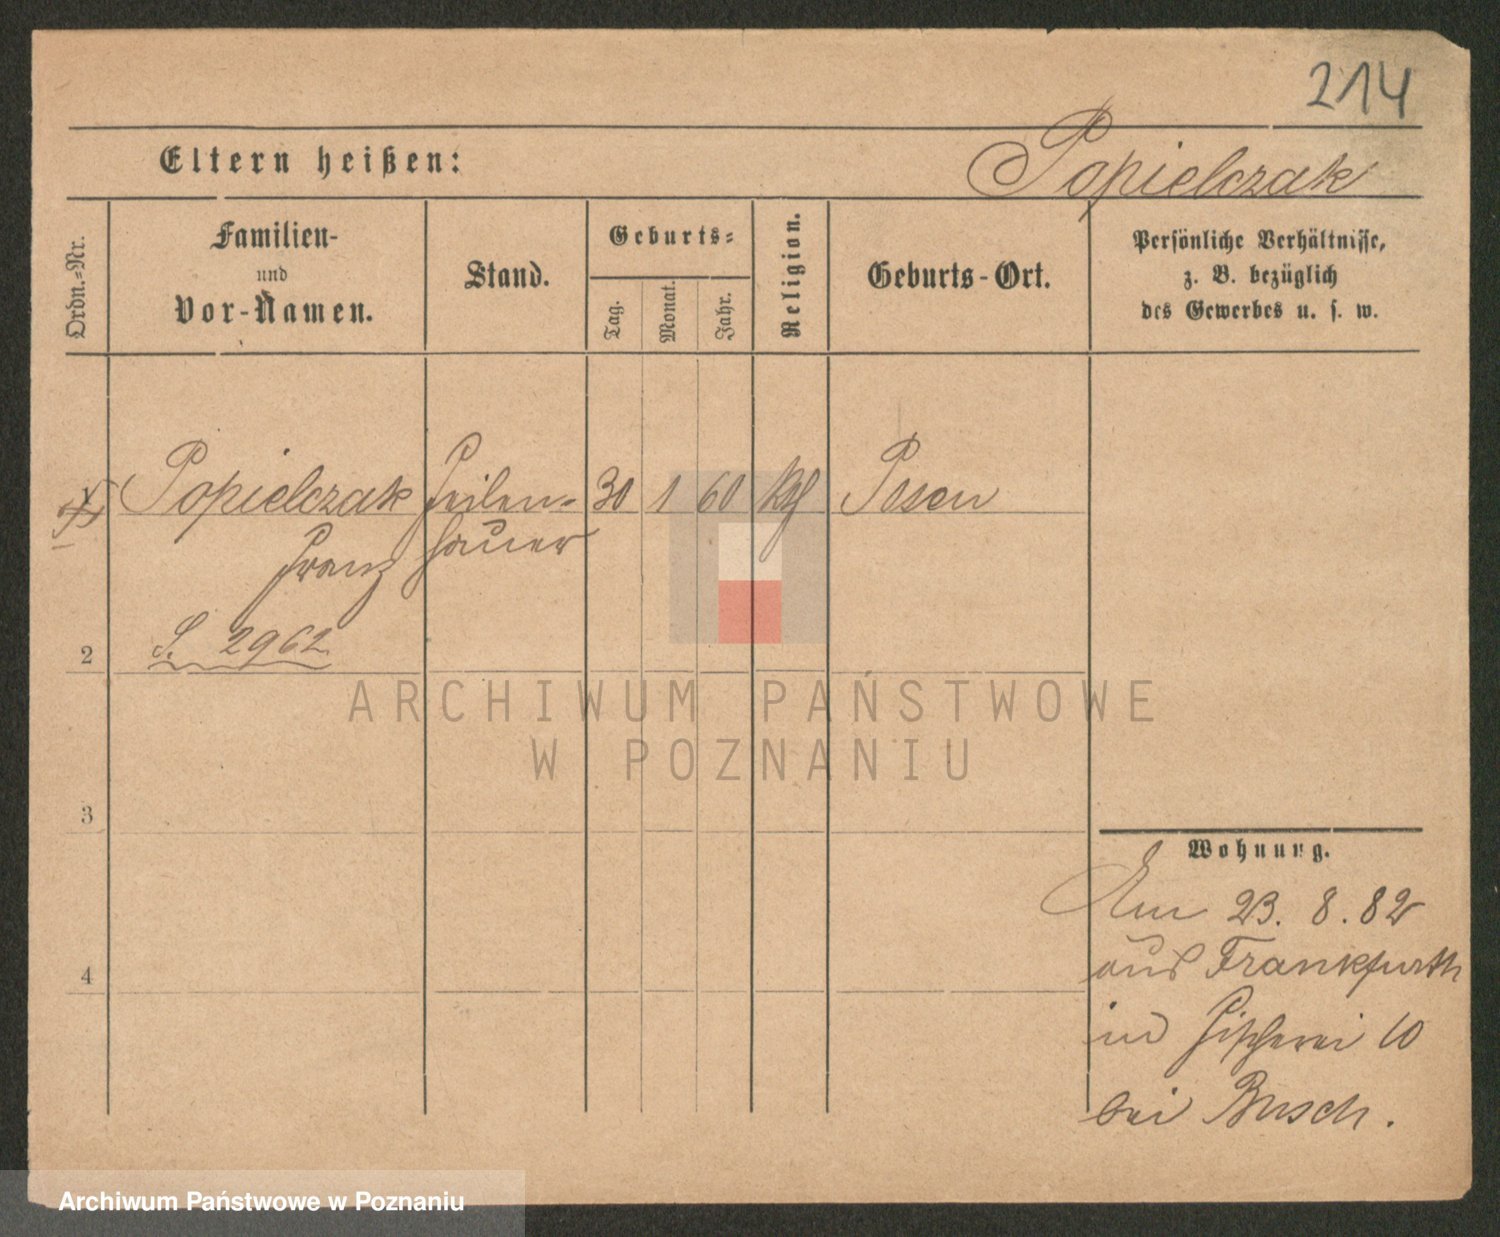 214
Eltern heißen:
Popielczak
Ordn.-Nr.
Familien-
und
Vor-Namen.
Stand.
Geburts-
Tag.
Monat.
Jahr.
Religion.
Geburts-Ort.
Persönliche Verhältnisse,
z. B. bezüglich
des Gewerbes u. s. w.
1 Popielczak Feilen- 30 1 60 kth Posen
Franz hauer
S. 2962
2
ARCHIWUM PAŃSTWOWE
W POZNANIU
3
Wohnung.
Am 23. 8. 82
aus Frankfurth
in Fischerei 10
bei Busch.
4
Archiwum Państwowe w Poznaniu